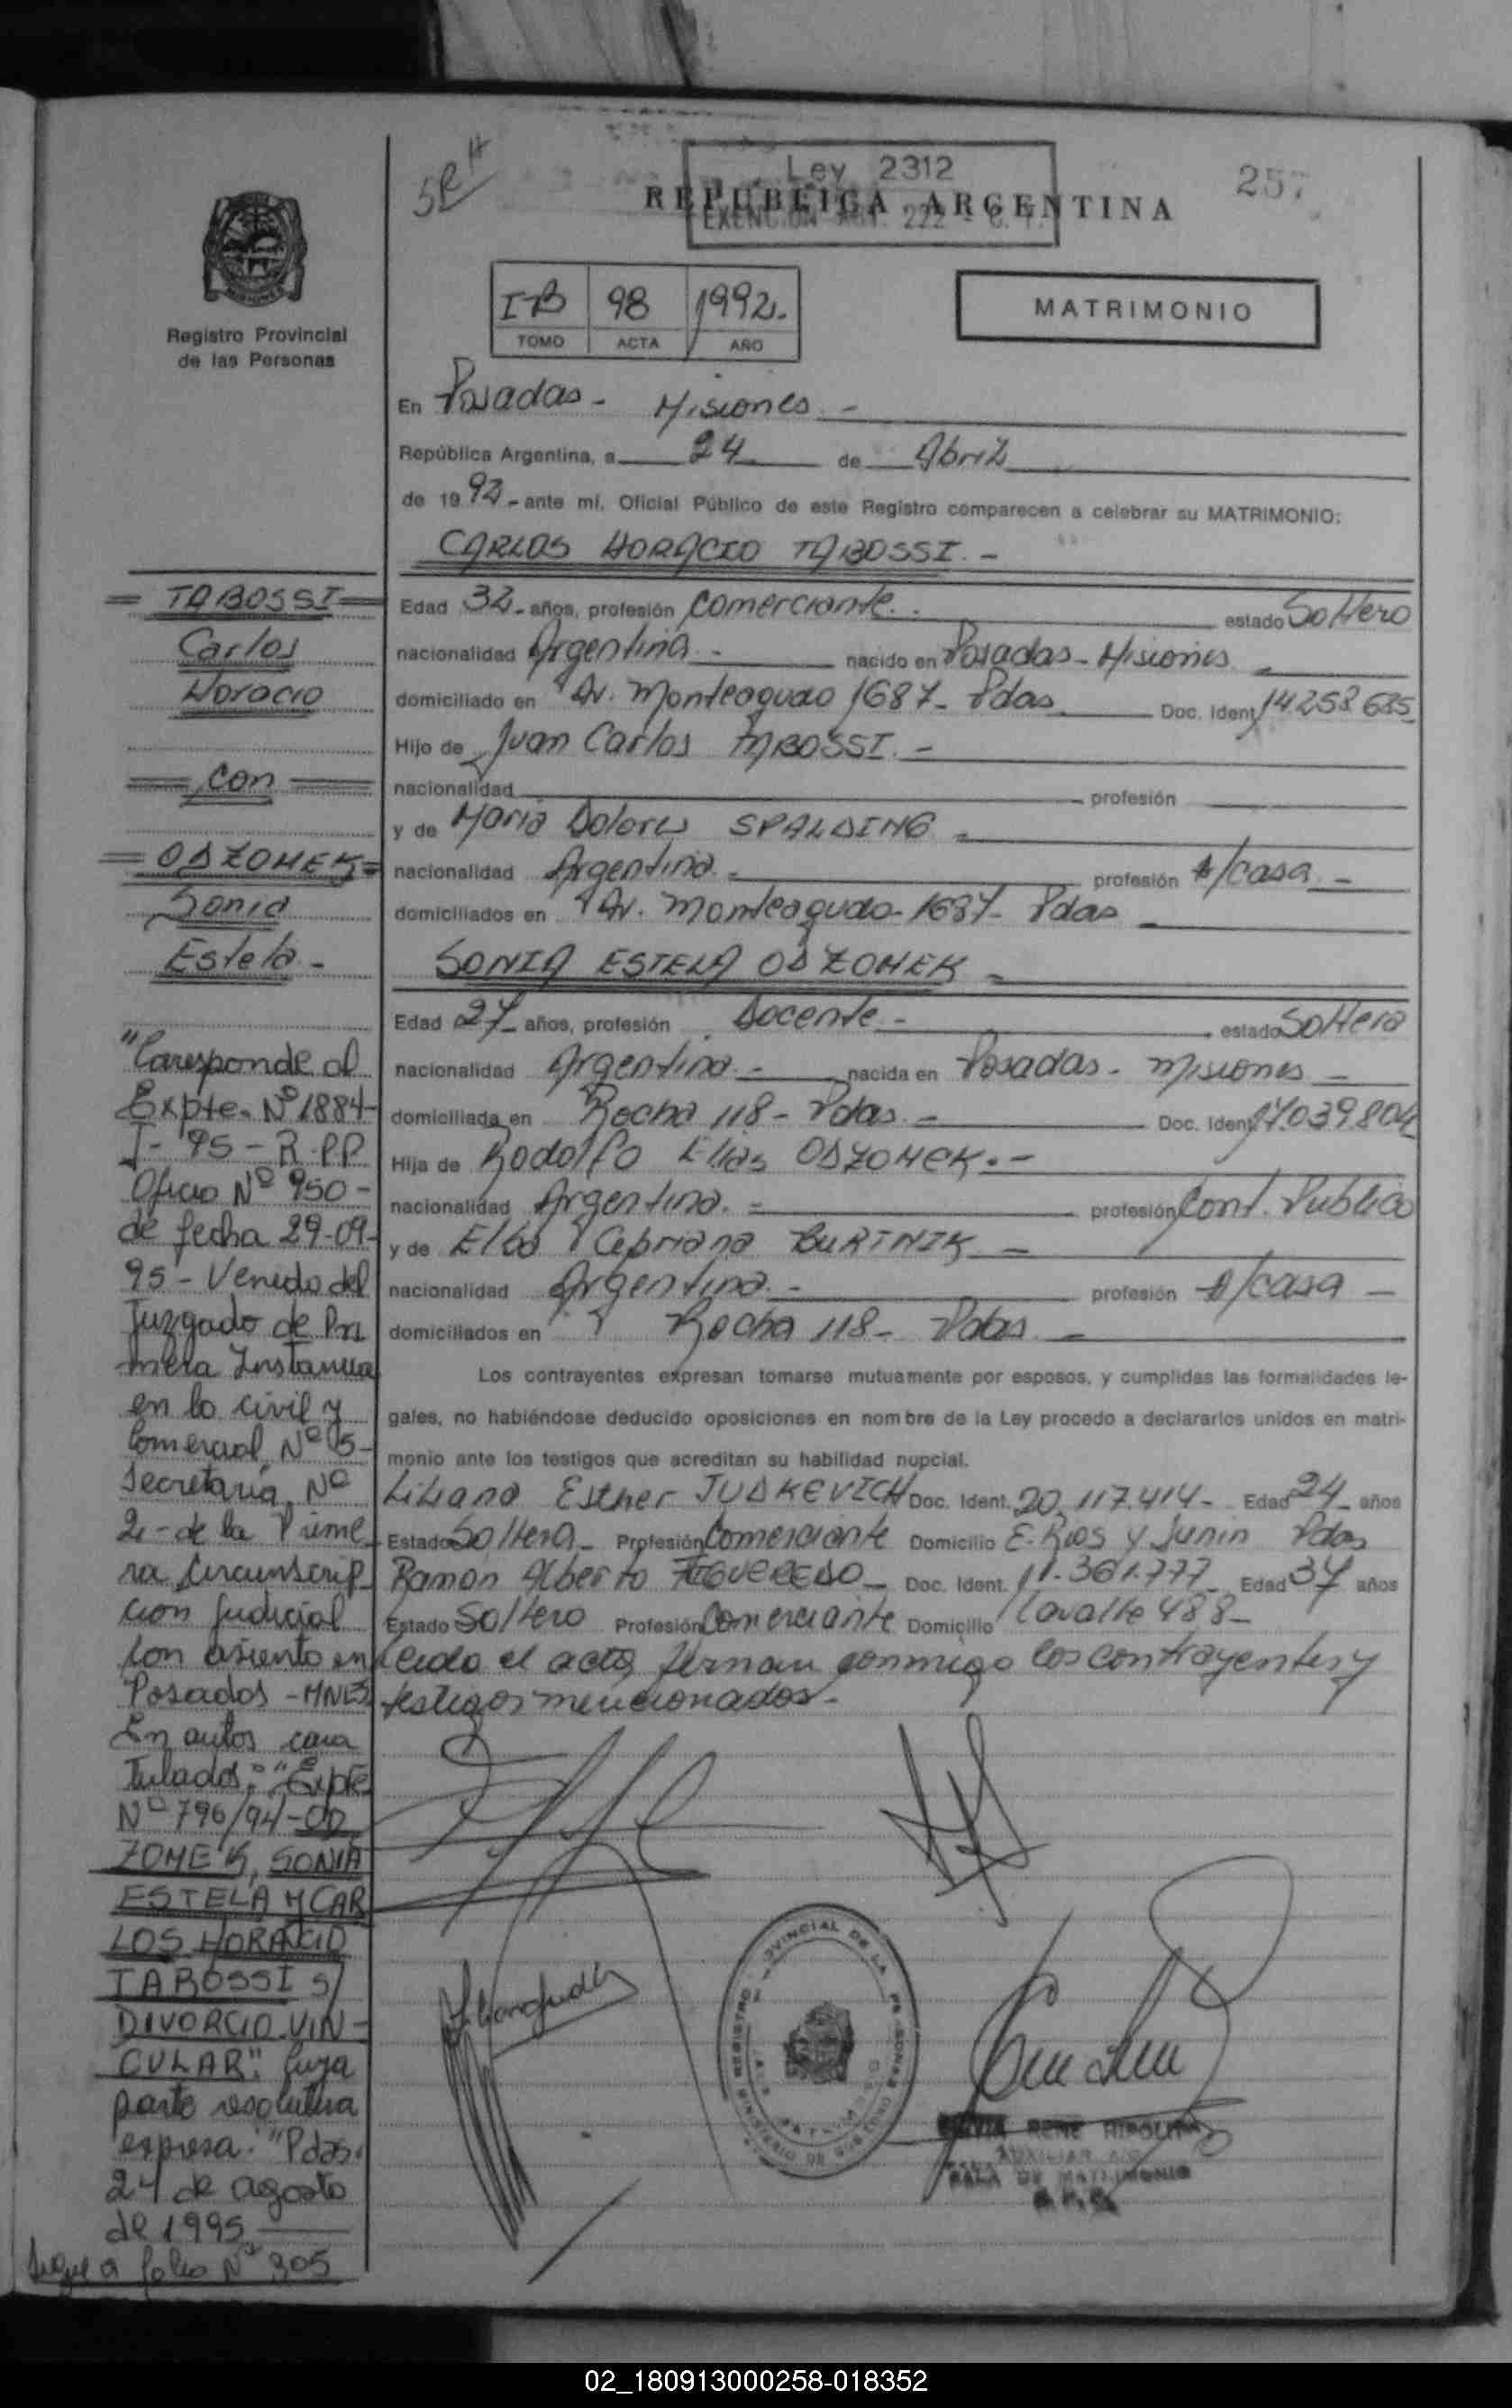 Ley 2312
257
REPUBLICA ARGENTINA
EXENCION ART. 222 - C. F.
Registro Provincial
de las Personas
I-B 98 1992.
TOMO ACTA AÑO
MATRIMONIO
En Posadas - Misiones -
República Argentina, a 24 de Abril
de 1992 - ante mí, Oficial Público de este Registro comparecen a celebrar su MATRIMONIO:
CARLOS HORACIO TABOSSI. -
Edad 32 - años, profesión Comerciante. estado Soltero
nacionalidad Argentina - nacido en Posadas - Misiones -
domiciliado en Av. Monteagudo 1687 - Pdas Doc. Ident. 14.258.685
Hijo de Juan Carlos TABOSSI. -
nacionalidad profesión
y de Maria Dolores SPALDING -
nacionalidad Argentina. - profesión A/casa -
domiciliados en Av. Monteagudo - 1687 - Pdas
SONIA ESTELA ODZOMEK -
Edad 27 - años, profesión Docente - estado Soltera
nacionalidad Argentina - nacida en Posadas - Misiones -
domiciliada en Rocha 118 - Pdas. - Doc. Ident. 17.039.804
Hija de Rodolfo Elias ODZOMEK. -
nacionalidad Argentina. - profesión Cont. Publico
y de Elba Cipriana BURTNIK -
nacionalidad Argentina. - profesión A/casa -
domiciliados en Rocha 118 - Pdas -
Los contrayentes expresan tomarse mutuamente por esposos, y cumplidas las formalidades le-
gales, no habiéndose deducido oposiciones en nombre de la Ley procedo a declararlos unidos en matri-
monio ante los testigos que acreditan su habilidad nupcial.
Liliana Esther JUDKEVICH Doc. Ident. 20.117.414 - Edad 24 - años
Estado Soltera - Profesión Comerciante Domicilio E. Rios y Junin Pdas
Ramon Alberto FIGUEREDO - Doc. Ident. 11.361.777 - Edad 37 años
Estado Soltero Profesión Comerciante Domicilio Lavalle 488 -
Leida el acta, firman conmigo los contrayentes y
testigos mencionados. -
= TABOSSI =
Carlos
Horacio
= con =
= ODZOMEK =
Sonia
Estela -
"Coresponde al
Expte. Nº 1884-
J - 95 - R.P.P.
Oficio Nº 950 -
de fecha 29-09-
95 - Venido del
Juzgado de Pri
mera Instancia
en lo civil y
Comercial Nº 5 -
Secretaria Nº
2 - de la Prime
ra Circunscrip
cion Judicial
con asiento en
Posadas - MNES
En autos cara
tulados: "Expte
Nº 796/94 - OD
ZOMEK, SONIA
ESTELA Y CAR
LOS HORACIO
TABOSSI S/
DIVORCIO VIN-
CULAR". Cuya
parte resolutiva
expresa: "Pdas.
24 de agosto
de 1995
Sigue a folio Nº 305
RENE HIPOLITO
AUXILIAR
SALA DE MATRIMONIO
02_180913000258-018352